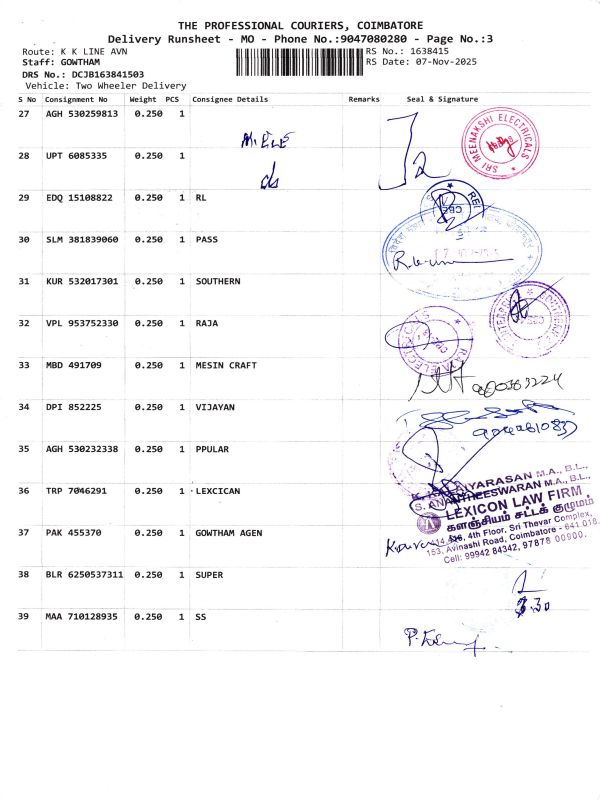 THE PROFESSIONAL COURIERS, COIMBATORE
Delivery Runsheet - MO - Phone No.:9047080280 - Page No.:3
Route: K K LINE AVN
RS No.: 1638415
Staff: GOWTHAM
RS Date: 07-Nov-2025
DRS No.: DCJB163841503
Vehicle: Two Wheeler Delivery
S No Consignment No Weight PCS Consignee Details Remarks Seal & Signature
27 AGH 530259813 0.250 1
SRI MEENAKSHI ELECTRICALS
28 UPT 6085335 0.250 1
29 EDQ 15108822 0.250 1 RL
30 SLM 381839060 0.250 1 PASS
31 KUR 532017301 0.250 1 SOUTHERN
32 VPL 953752330 0.250 1 RAJA
33 MBD 491709 0.250 1 MESIN CRAFT
34 DPI 852225 0.250 1 VIJAYAN
35 AGH 530232338 0.250 1 PPULAR
36 TRP 7046291 0.250 1 LEXCICAN
AIYARASAN M.A., B.L.,
S. ANANTHEESWARAN M.A., B.L.,
LEXICON LAW FIRM
களஞ்சியம் சட்டக் குழுமம்
4th Floor, Sri Thevar Complex,
153, Avinashi Road, Coimbatore - 641 018.
Cell: 99942 84342, 97878 00900.
37 PAK 455370 0.250 1 GOWTHAM AGEN
38 BLR 6250537311 0.250 1 SUPER
39 MAA 710128935 0.250 1 SS